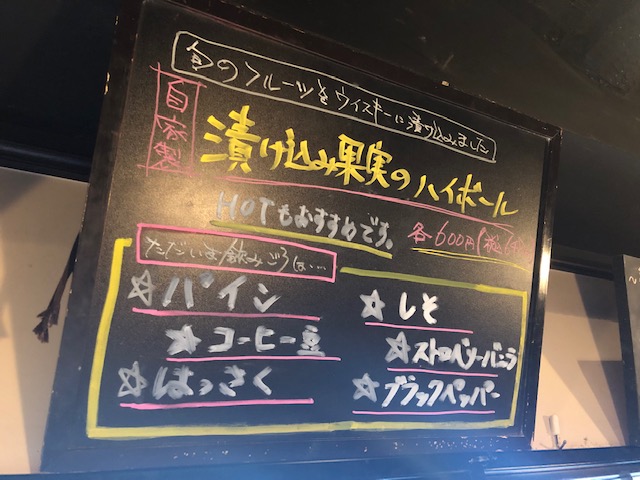 旬のフルーツをウイスキーに漬け込みました
自家製
漬け込み果実のハイボール
HOTもおすすめです。
各600円(税
ただいま飲みごろは...
☆パイン
☆コーヒー豆
☆はっさく
☆しそ
☆ストロベリーバニラ
☆ブラックペッパー